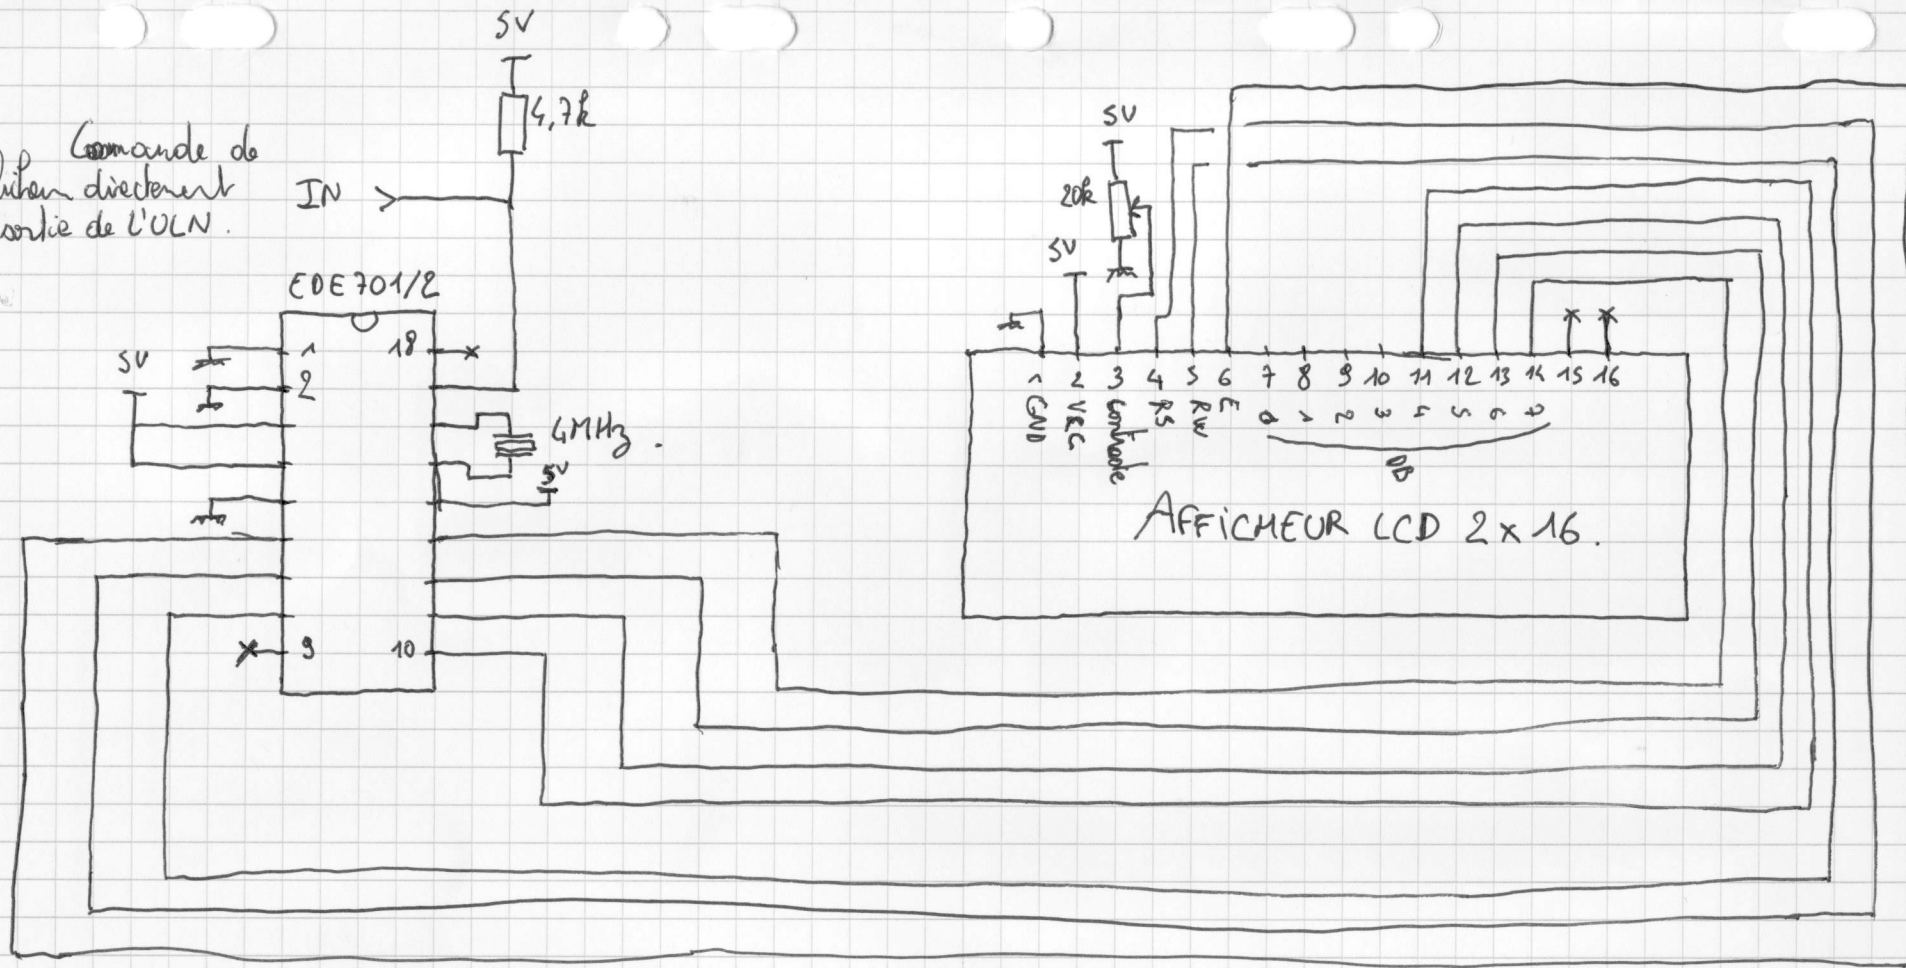 5V
4,7k
Commande de
directement
sortie de l'ULN.
IN
EDE701/2
5V
1
18
2
4MHz.
5V
9
10
5V
20k
5V
1 2 3 4 5 6 7 8 9 10 11 12 13 14 15 16
GND VCC Contraste RS RW E 0 1 2 3 4 5 6 7
DB
AFFICHEUR LCD 2x16.